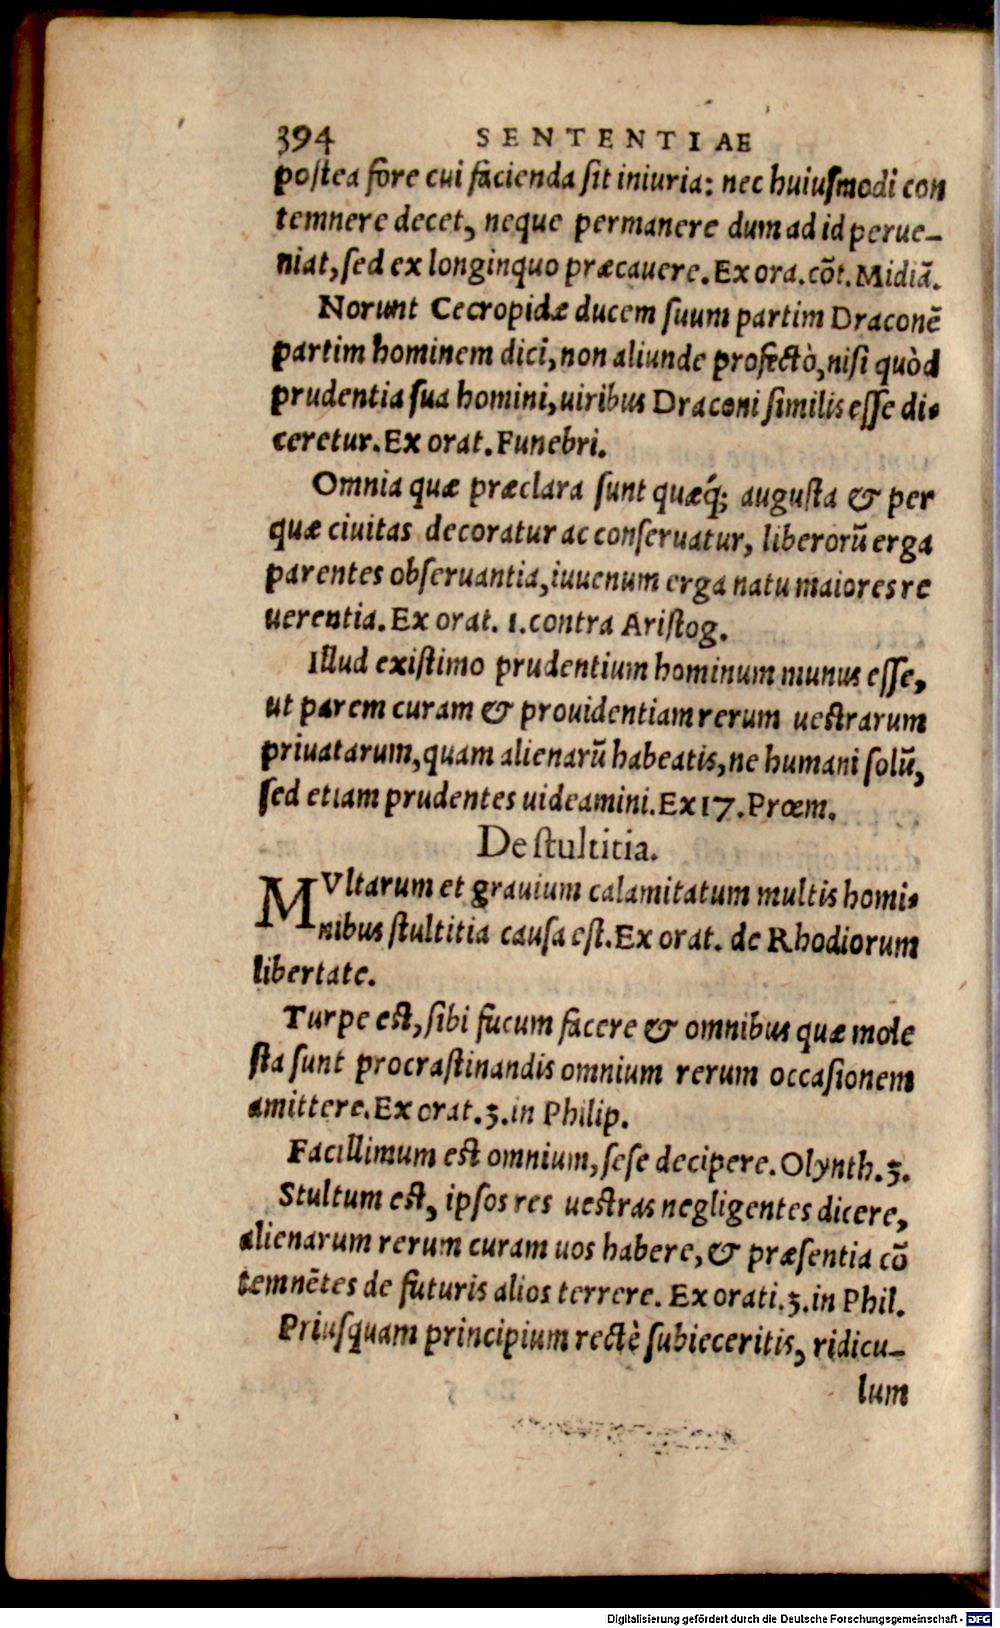 394 SENTENTIAE
postea fore cui facienda sit iniuria: nec huiusmodi con
temnere decet, neque permanere dum ad id perue-
niat, sed ex longinquo præcauere. Ex ora. cõt. Midiã.
Norunt Cecropidæ ducem suum partim Draconẽ
partim hominem dici, non aliunde profectò, nisi quòd
prudentia sua homini, uiribus Draconi similis esse di-
ceretur. Ex orat. Funebri.
Omnia quæ præclara sunt quæq́; augusta & per
quæ ciuitas decoratur ac conseruatur, liberorũ erga
parentes obseruantia, iuuenum erga natu maiores re
uerentia. Ex orat. 1. contra Aristog.
Illud existimo prudentium hominum munus esse,
ut parem curam & prouidentiam rerum uestrarum
priuatarum, quam alienarũ habeatis, ne humani solũ,
sed etiam prudentes uideamini. Ex 17. Proœm.
De stultitia.
MVltarum et grauium calamitatum multis homi-
nibus stultitia causa est. Ex orat. de Rhodiorum
libertate.
Turpe est, sibi fucum facere & omnibus quæ mole
sta sunt procrastinandis omnium rerum occasionem
amittere. Ex orat. 3. in Philip.
Facillimum est omnium, sese decipere. Olynth. 3.
Stultum est, ipsos res uestras negligentes dicere,
alienarum rerum curam uos habere, & præsentia cõ
temnẽtes de futuris alios terrere. Ex orati. 3. in Phil.
Priusquam principium rectè subieceritis, ridicu-
lum
Digitalisierung gefördert durch die Deutsche Forschungsgemeinschaft - DFG